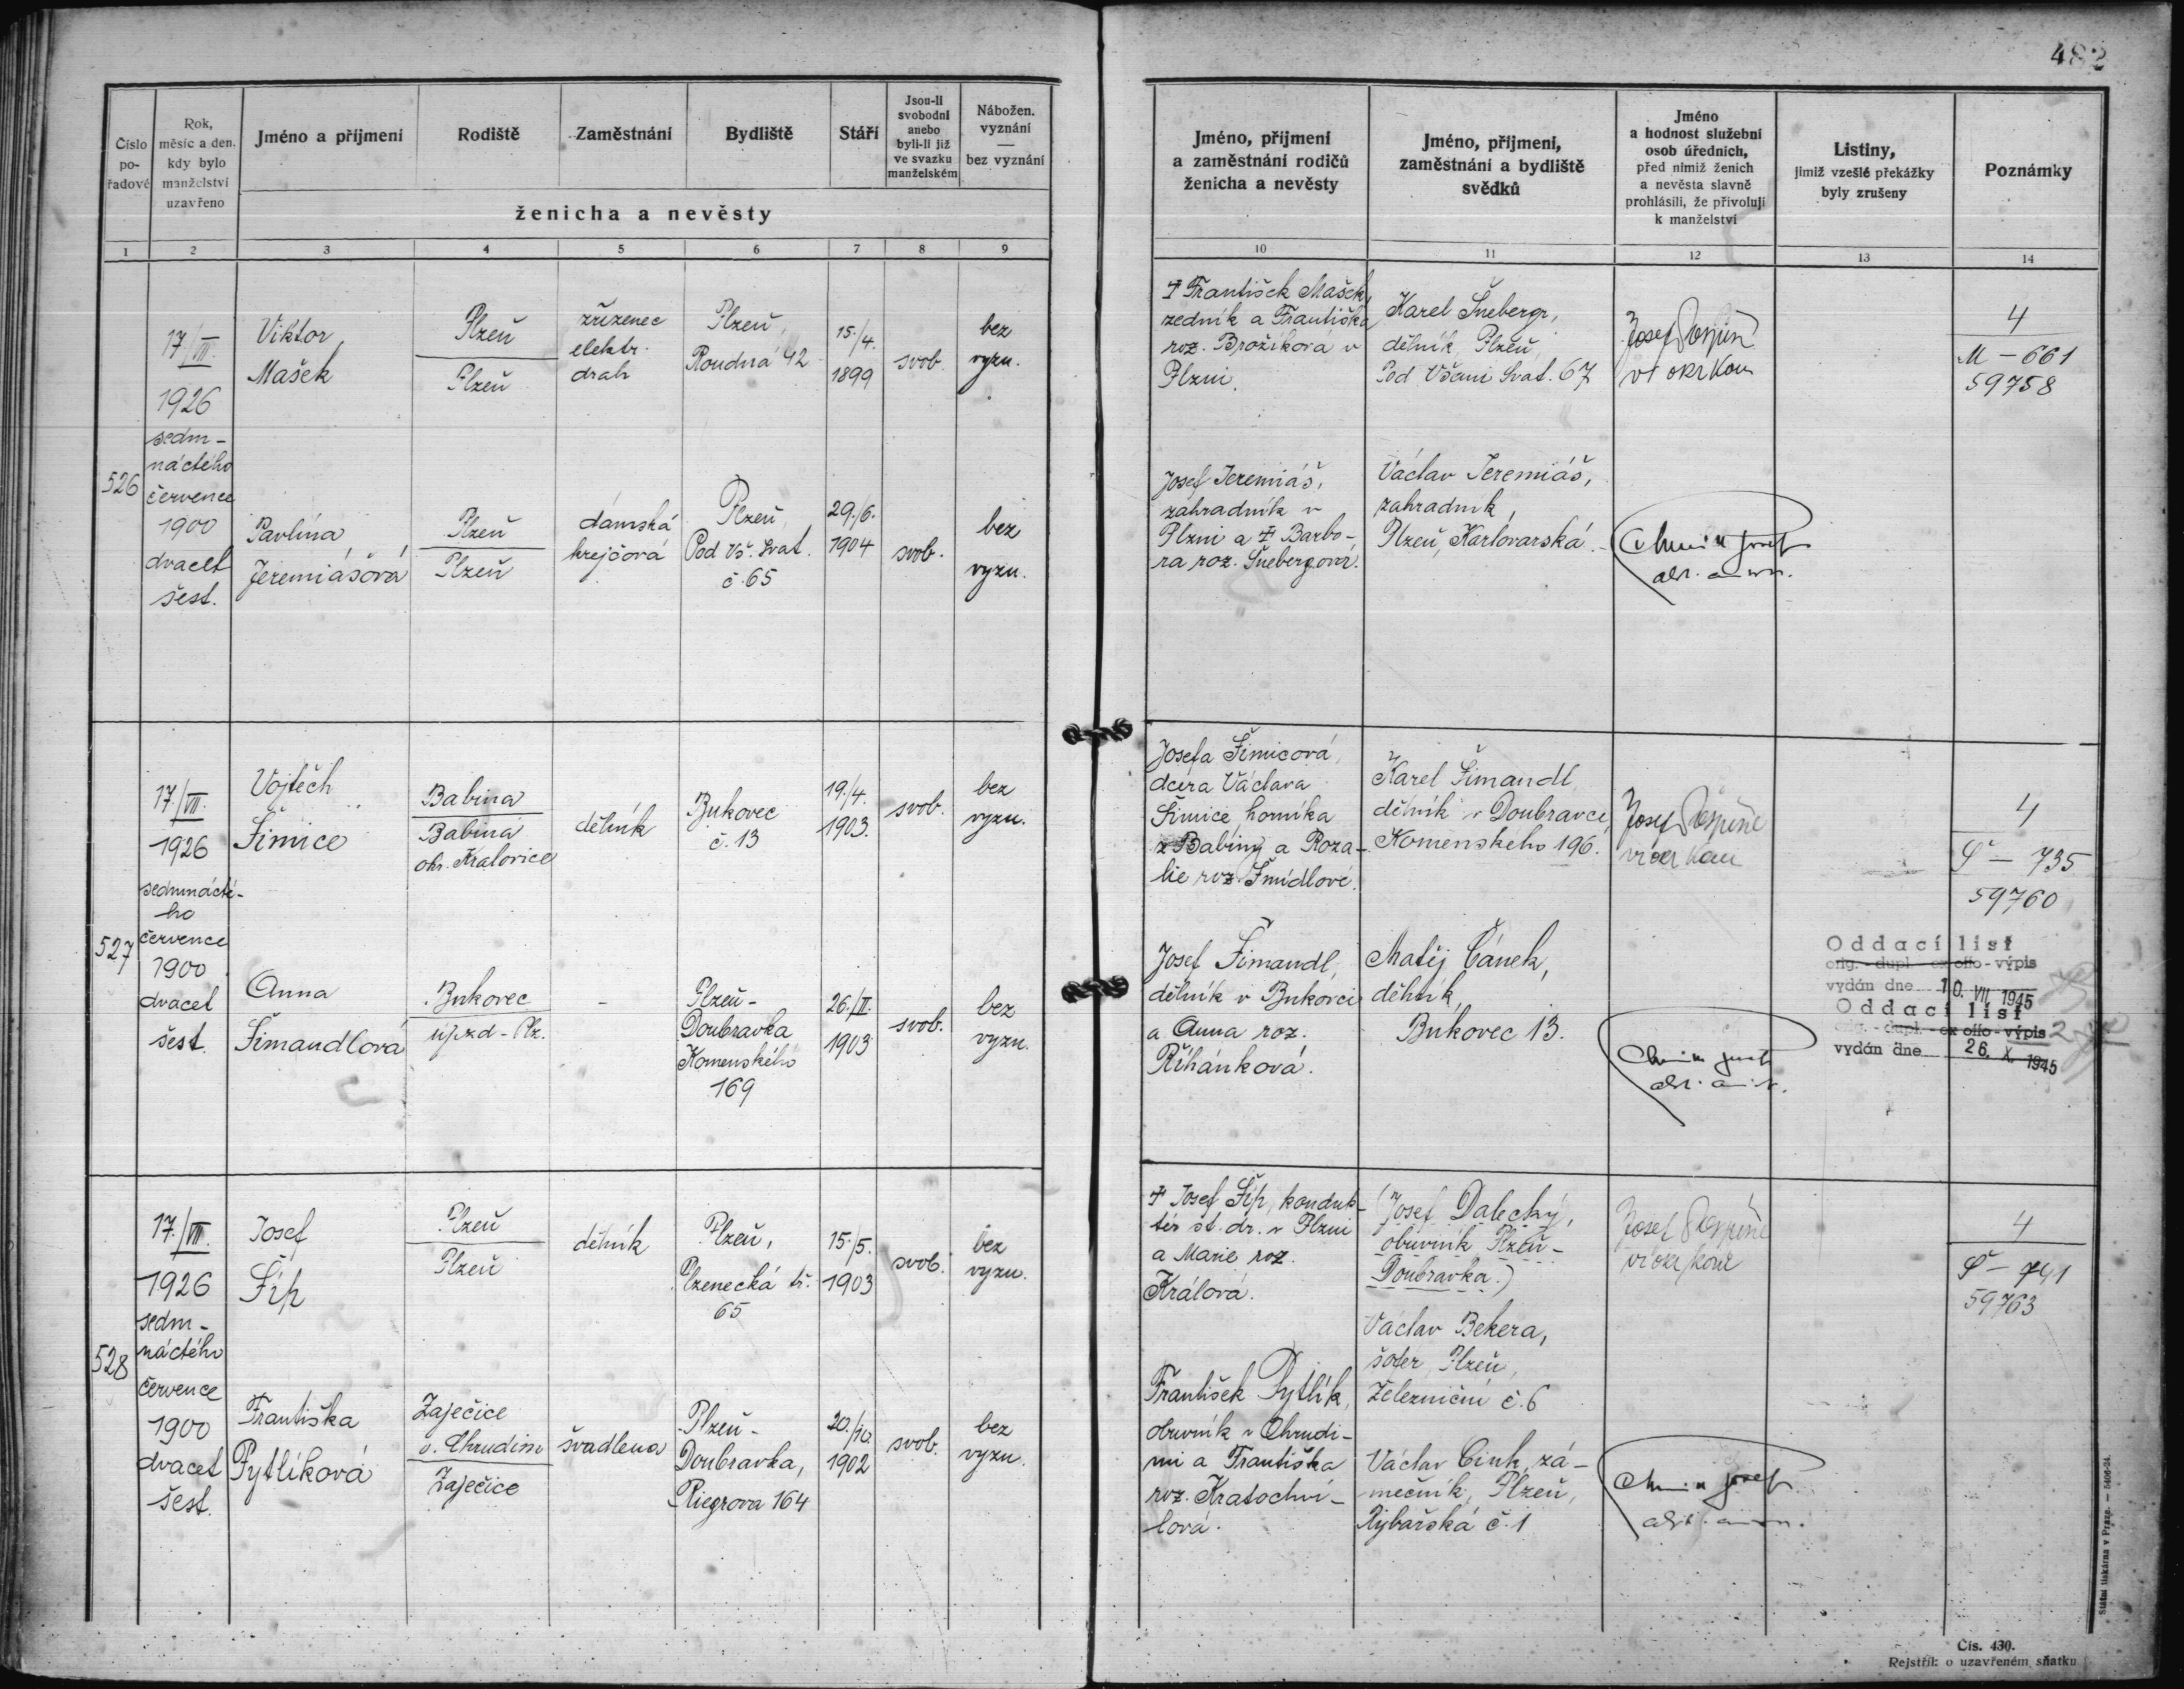 482
Číslo pořadové
Rok, měsíc a den, kdy bylo manželství uzavřeno
Jméno a příjmení
Rodiště
Zaměstnání
Bydliště
Stáří
Jsou-li svobodni anebo byli-li již ve svazku manželském
Nábožen. vyznání — bez vyznání
ženicha a nevěsty
Jméno, příjmení a zaměstnání rodičů ženicha a nevěsty
Jméno, příjmení, zaměstnání a bydliště svědků
Jméno a hodnost služební osob úředních, před nimiž ženich a nevěsta slavně prohlásili, že přivolují k manželství
Listiny, jimiž vzešlé překážky byly zrušeny
Poznámky
1 2 3 4 5 6 7 8 9 10 11 12 13 14
526
17/VII.
1926
sedm-
náctého
července
1900
dvacet
šest.
Viktor
Mašek
Plzeň
Plzeň
zřízenec
elektr.
drah
Plzeň,
Roudná 42
15./4.
1899
svob.
bez
vyzn.
† František Mašek,
zedník a Františka
roz. Brožíková v
Plzni.
Karel Šneberg,
dělník, Plzeň,
Pod Všemi Svat. 67
Josef
4
M - 661
59758
Pavlína
Jeremiášová
Plzeň
Plzeň
dámská
krejčová
Plzeň,
Pod Vš. Svat.
č. 65
29./6.
1904
svob.
bez
vyzn.
Josef Jeremiáš,
zahradník v
Plzni a † Barbo-
ra roz. Šnebergová.
Václav Jeremiáš,
zahradník,
Plzeň, Karlovarská
527
17./VII.
1926
sedmnácté-
ho
července
1900
dvacet
šest.
Vojtěch
Šimice
Babina
Babina
okr. Kralovice
dělník
Bukovec
č. 13
19./4.
1903.
svob.
bez
vyzn.
Josefa Šimicová,
dcera Václava
Šimice horníka
z Babiny a Roza-
lie roz. Šmídlové.
Karel Šimandl
dělník v Doubravce,
Komenského 196.
Josef
4
Š - 735
59760
Anna
Šimandlová
Bukovec
újezd - Plz.
-
Plzeň-
Doubravka
Komenského
169
26./II.
1903
svob.
bez
vyzn.
Josef Šimandl,
dělník v Bukovci
a Anna roz.
Říhánková.
Matěj Čánek,
dělník,
Bukovec 13.
Oddací list
orig. - dupl. - ex offo - výpis
vydán dne 10. VII. 1945
Oddací list
orig. - dupl. - ex offo - výpis
vydán dne 26. X. 1945
528
17./VII.
1926
sedm-
náctého
července
1900
dvacet
šest.
Josef
Šíp
Plzeň
Plzeň
dělník
Plzeň,
Plzenecká tř.
65
15./5.
1903
svob.
bez
vyzn.
† Josef Šíp, konduk-
tér st. dr. v Plzni
a Marie roz.
Králová.
(Josef Dalecký,
obuvník Plzeň-
Doubravka.)
Václav Bekera,
šofér, Plzeň,
Železniční č. 6
Josef
4
Š - 741
59763
Františka
Pytlíková
Zaječice
o. Chrudim
Zaječice
švadlena
Plzeň-
Doubravka,
Riegrova 164
20./10.
1902
svob.
bez
vyzn.
František Pytlík,
obuvník v Chrudi-
mi a Františka
roz. Kratochví-
lová.
Václav Cink, zá-
mečník, Plzeň,
Rybářská č. 1
Státní tiskárna v Praze. — 5406-24.
Čís. 430.
Rejstřík o uzavřeném sňatku